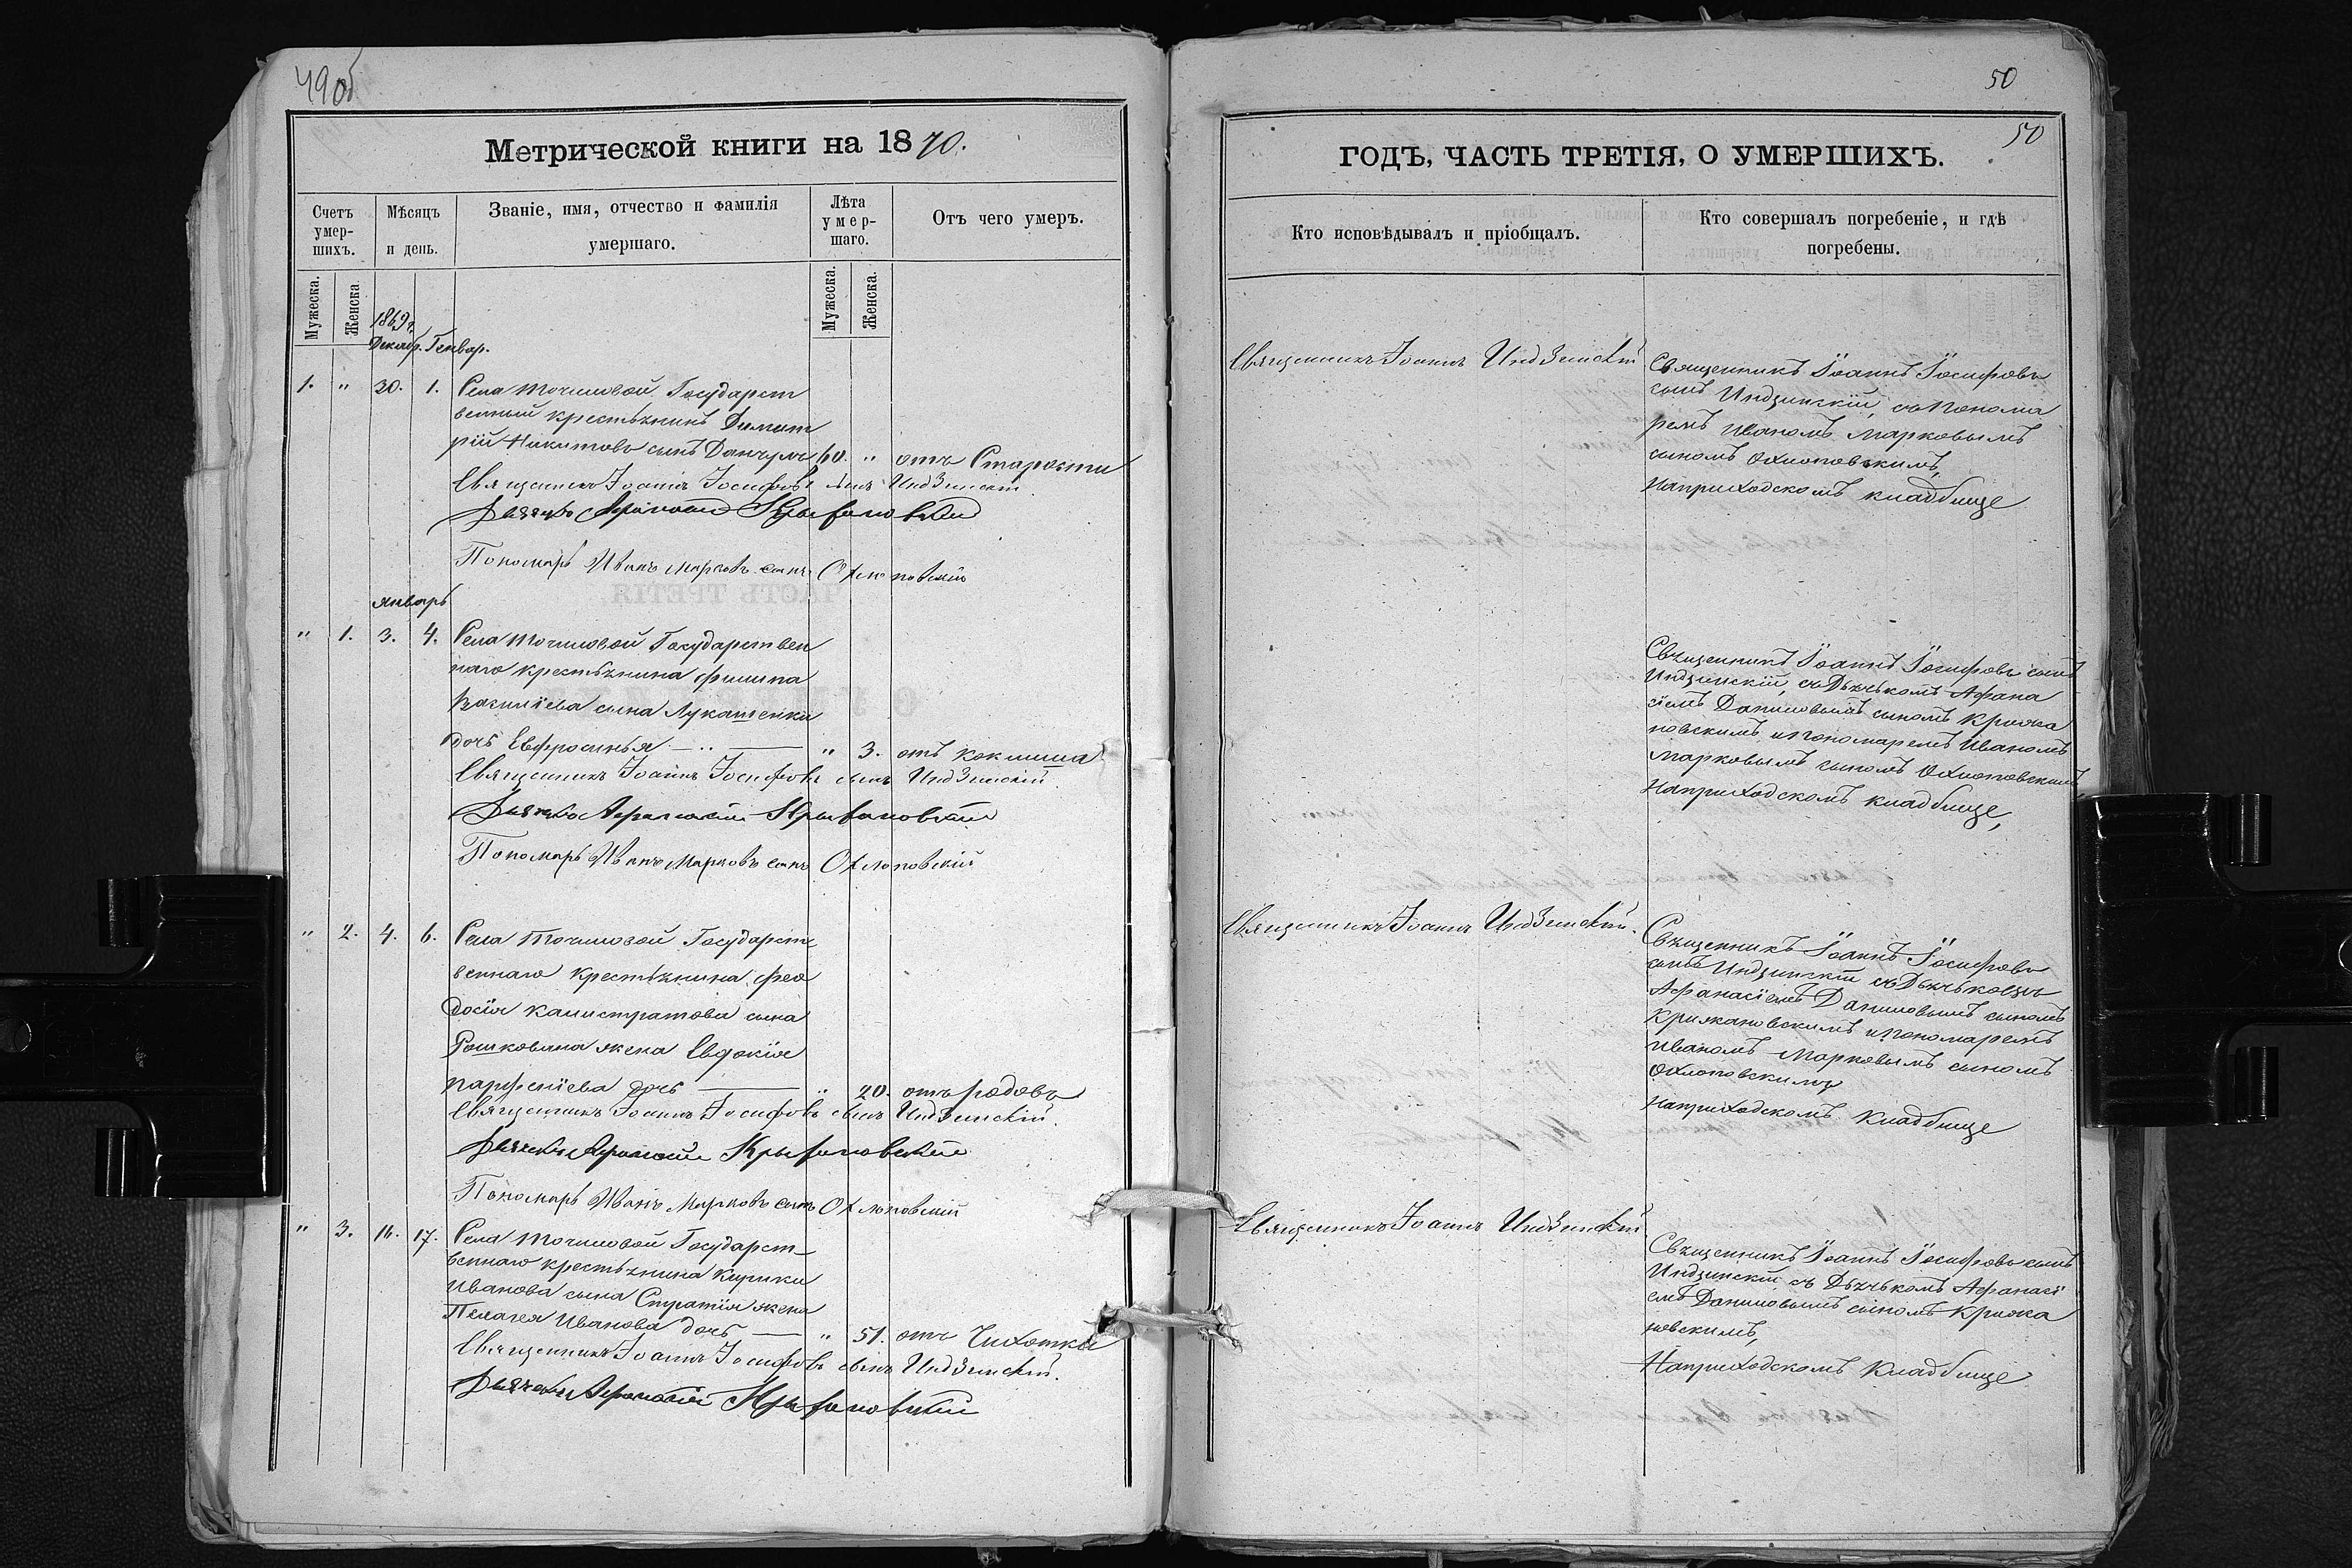 49об
Метрической книги на 1870.
Счетъ умер-шихъ.
Мѣсяцъ и день.
Званіе, имя, отчество и фамилія умершаго.
Лѣта умер-шаго.
Отъ чего умеръ.
Мужеска.
Женска
Мужеска.
Женска.
1869 г.
Декабр. Генвар.
1. " 30. 1. Села Точиловой Государст
венный крестьянинъ Димит
рій Никитовъ сынъ Данчулъ 60. " отъ Старости
Священникъ Іоаннъ Іосифовъ сынъ Индзинскій
Дьячекъ Афанасій Крыжановскій
Пономарь Иванъ Марковъ сынъ Охлоповскій
январь
" 1. 3. 4. Села Точиловой Государствен
наго крестьянина Филипа
Василіева сына Лукашенки
дочь Евфросинья — " — " 3. отъ коклиша
Священникъ Іоаннъ Іосифовъ сынъ Индзинскій.
Дьячекъ Афанасій Крыжановскій
Пономарь Иванъ Марковъ сынъ Охлоповскій
" 2. 4. 6. Села Точиловой Государст
веннаго крестьянина Фео
досія Калистратова сына
Рошкована жена Евдокія
Парфеніева дочь — " 20. отъ родовъ
Священникъ Іоаннъ Іосифовъ сынъ Индзинскій.
Дьячекъ Афанасій Крыжановскій
Пономарь Иванъ Марковъ сынъ Охлоповскій
" 3. 16. 17. Села Точиловой Государст-
веннаго крестьянина Кирики
Иванова сына Спратія жена
Пелагея Иванова дочь — " 51. отъ Чихотки
Священникъ Іоаннъ Іосифовъ сынъ Индзинскій.
Дьячекъ Афанасій Крыжановскій
50
50
ГОДЪ, ЧАСТЬ ТРЕТІЯ, О УМЕРШИХЪ.
Кто исповѣдывалъ и пріобщалъ.
Кто совершалъ погребеніе, и гдѣ погребены.
Священникъ Іоаннъ Индзинскій
Священникъ Іоаннъ Іосифовъ
сынъ Индзинскій, съ Понома
ремъ Иваномъ Марковымъ
сыномъ Охлоповскимъ,
Наприходскомъ кладбище
Священникъ Іоаннъ Іосифовъ сынъ
Индзинскій, съ Дьячькомъ Афана
сіемъ Даниловымъ сыномъ Крижа
новскимъ и пономаремъ Иваномъ
Марковымъ сыномъ Охлоповскимъ,
Наприходскомъ кладбище,
Священникъ Іоаннъ Индзинскій.
Священникъ Іоаннъ Іосифовъ
сынъ Индзинскій съ Дьячькомъ
Афанасіемъ Даниловымъ сыномъ
Крижановскимъ и пономаремъ
Иваномъ Марковымъ сыномъ
Охлоповскимъ
Наприходскомъ кладбище
Священникъ Іоаннъ Индзинскій
Священникъ Іоаннъ Іосифовъ сынъ
Индзинскій съ Дьячькомъ Афанасі
емъ Даниловымъ сыномъ Крижа
новскимъ,
Наприходскомъ кладбище